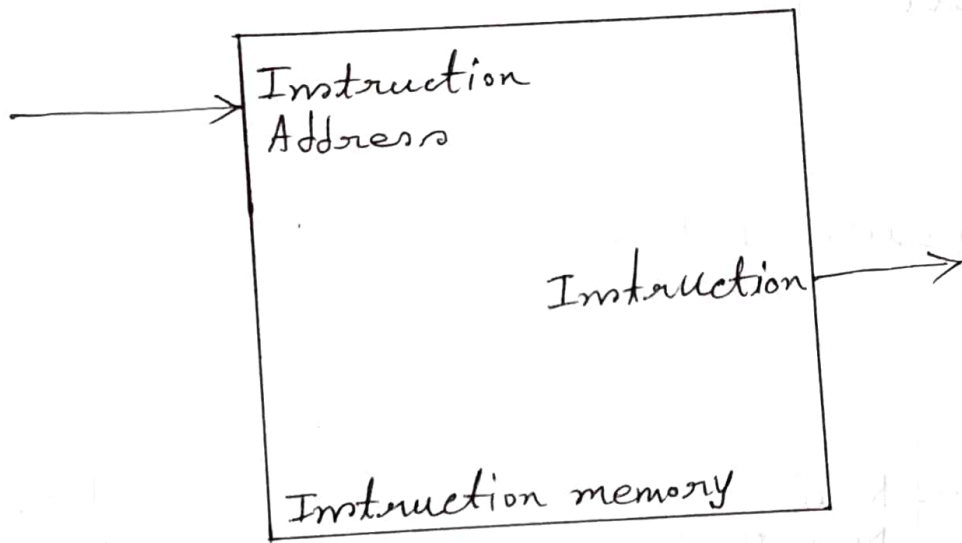 Instruction
Address
Instruction
Instruction memory